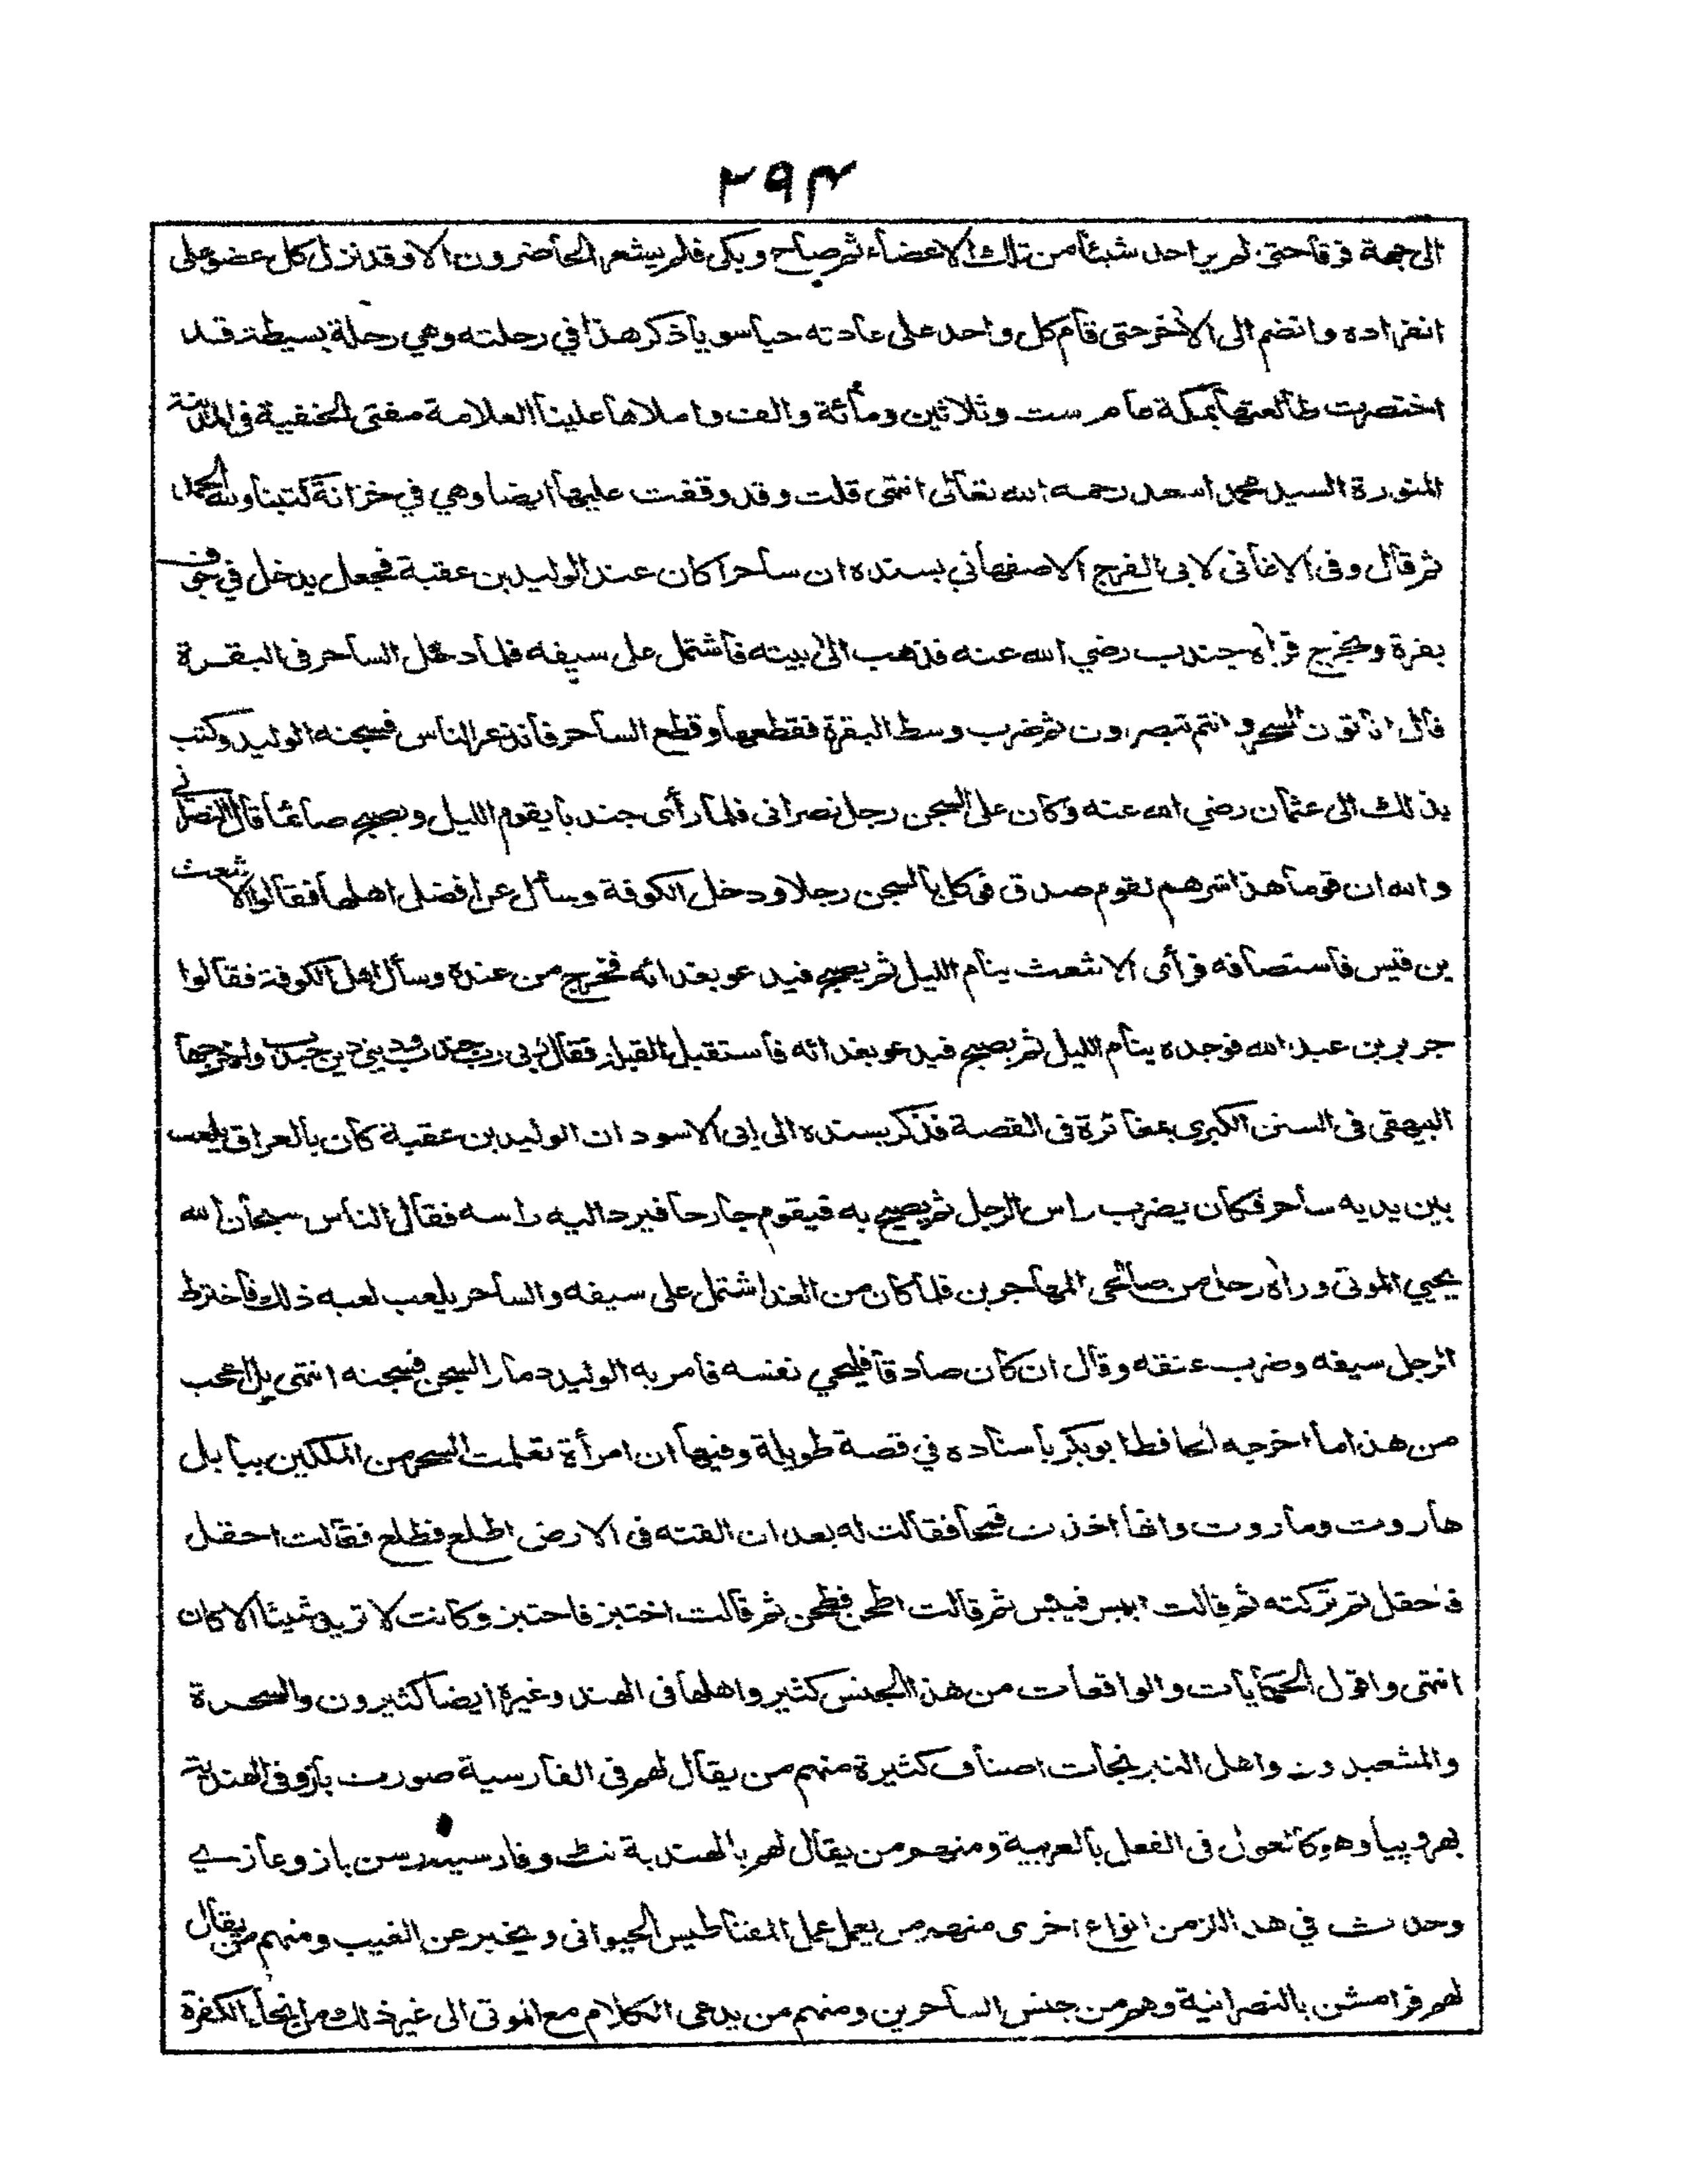 ٢٩٣
الى جهة فوقا حتى لم ير احد شيئا من تلك الاعضاء ثم صاح وبكى فلم يشعر الحاضرون الا وقد نزل كل عضو على
انفراده وانضم الى الاخر حتى قام كل واحد على عادته حيا سويا ذكر هذا في رحلته وهي رحلة بسيطة قد
اختصرت طالعتها بمكة عام ست وثلاثين ومائة والف واملاها علينا العلامة مفتى الحنفية فى المدينة
المنورة السيد محمد اسعد رحمه الله تعالى انتهى قلت وقد وقفت عليها ايضا وهي في خزانة كتبنا ولله الحمد
ثم قال وفى الاغانى لابى الفرج الاصفهاني بسنده ان ساحرا كان عند الوليد بن عقبة فجعل يدخل في جوف
بقرة ويخرج فراه جندب رضي الله عنه فذهب الى بيته فاشتمل على سيفه فلما دخل الساحر فى البقرة
قال اتأتون السحر وانتم تبصرون ثم ضرب وسط البقرة فقطعها وقطع الساحر فانذعر الناس فسجنه الوليد وكتب
بذلك الى عثمان رضي الله عنه وكان على السجن رجل نصرانى فلما رأى جندبا يقوم الليل ويصبح صائما قال النصرانى
والله ان قوما هذا شرهم لقوم صدق فوكل بالسجن رجلا ودخل الكوفة وسأل عن افضل اهلها فقالوا الاشعث
بن قيس فاستضافه فرأى الاشعث ينام الليل ثم يصبح فيدعو بغدائه فخرج من عنده وسأل اهل الكوفة فقالوا
جرير بن عبد الله فوجده ينام الليل ثم يصبح فيدعو بغدائه فاستقبل القبلة فقال ربى رب جندب ودينى دين جندب واخرجها
البيهقى فى السنن الكبرى بمغائرة فى القصة فذكر بسنده الى ابى الاسود ان الوليد بن عقبة كان بالعراق يلعب
بين يديه ساحر فكان يضرب راس الرجل ثم يصيح به فيقوم خارجا فيرد اليه راسه فقال الناس سبحان الله
يحيي الموتى وراه رجل من صالحى المهاجرين فلما كان من الغد اشتمل على سيفه والساحر يلعب لعبه ذلك فاخترط
الرجل سيفه وضرب عنقه وقال ان كان صادقا فليحي نفسه فامر به الوليد دينارا السجن فسجنه انتهى بل اعجب
من هذا ما اخرجه الحافظ ابو بكر باسناده في قصة طويلة وفيها ان امرأة تعلمت السحر من الملكين ببابل
هاروت وماروت وانها اخذت قمحا فقالت له بعد ان القته فى الارض اطلع فطلع فقالت احقل
فاحقل ثم تركته ثم قالت ايبس فيبس ثم قالت اطحن فطحن ثم قالت اختبز فاختبز وكانت لا تريد شيئا الا كان
انتهى واقول الحكايات والواقعات من هذا الجنس كثير واهلها فى الهند وغيره ايضا كثيرون والسحرة
والمشعبدون واهل النيرنجات اصناف كثيرة منهم من يقال لهم فى الفارسية صورت باز وفى الهندية
بهروپيا وهو كالغول فى الفعل بالعربية ومنهم من يقال لهم بالهندية نٹ وفارسيه رسن باز و
وحدث في هذا الزمن انواع اخرى منهم من يعمل عمل المقناطيس الحيوانى ويخبر عن الغيب ومنهم من يقال
لهم فرامشن بالنصرانية وهم من جنس الساحرين ومنهم من يدعى الكلام مع الموتى الى غير ذلك من انحاء الكفرة